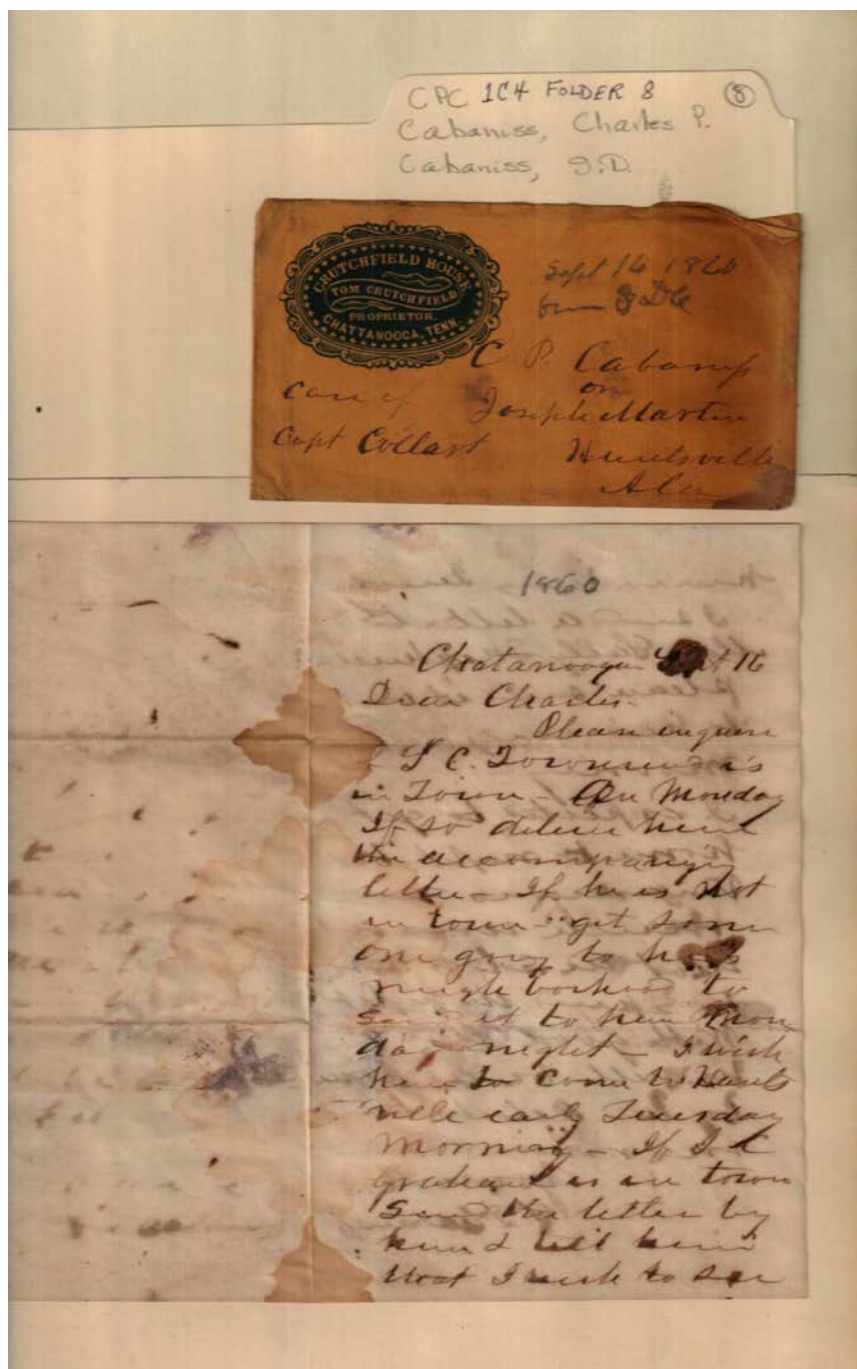 CPC 1C4 FOLDER 8 (8)
Cabaniss, Charles P.
Cabaniss, S.D.
CRUTCHFIELD HOUSE
TOM CRUTCHFIELD
PROPRIETOR.
CHATTANOOGA, TENN
Sept 16 1860
from S D C
C P. Cabaniss
or
Care of Joseph Martin
Capt Collart Huntsville
Ala
1860
Chatanooga Sept 16
Dear Charles.
Please inquire
S C. Townsend is
in Town - On Monday
If so deliver him
the accompanying
letter - If he is not
in town - get some
one going to his
neighborhood to
send it to him Mon
day night - I wish
him to come to Hunts
ville early Tuesday
Morning - If
graham is in town
Send the letter by
him & tell him
that I wish to see